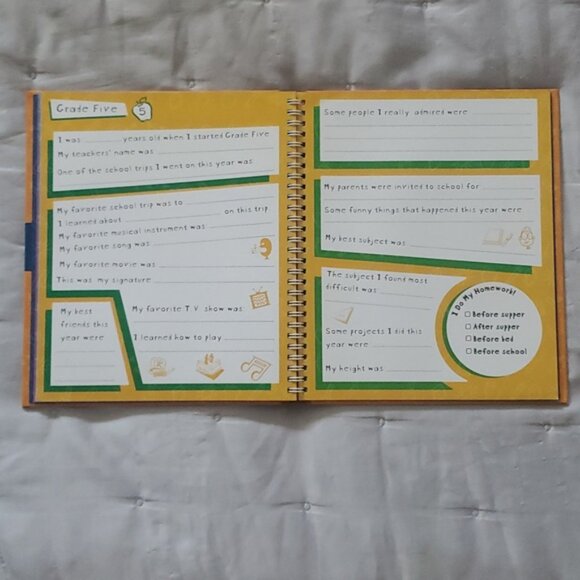 Grade Five
5
I was ______ years old when I started Grade Five
My teachers' name was
One of the school trips I went on this year was
My favorite school trip was to ______ on this trip
I learned about
My favorite musical instrument was
My favorite song was
My favorite movie was
This was my signature
My best
friends this
year were
My favorite T.V. show was
I learned how to play
Some people I really admired were
My parents were invited to school for
Some funny things that happened this year were
My best subject was
The subject I found most
difficult was
Some projects I did this
year were
My height was
I Do My Homework!
Before supper
After supper
Before bed
Before school